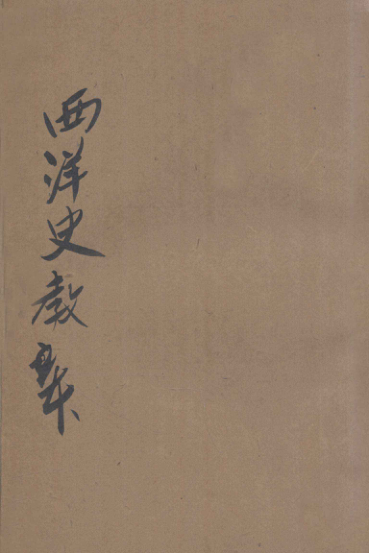 西洋史教